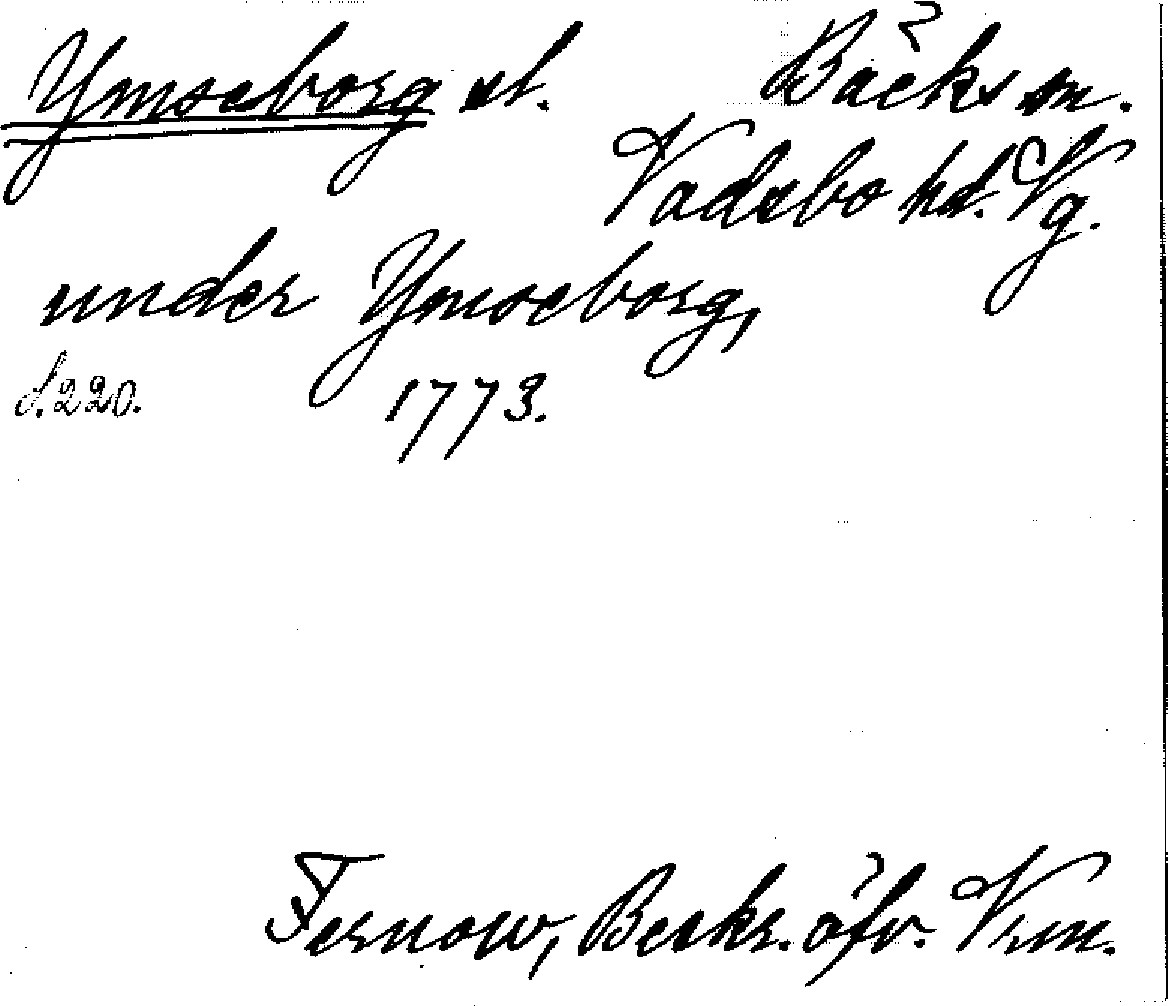 Ymseborg st. Bäcks sn.
Vadsbo hd. Vg.
under Ymseborg,
s. 220. 1773.
Fernow, Beskr. öfv. Vrm.